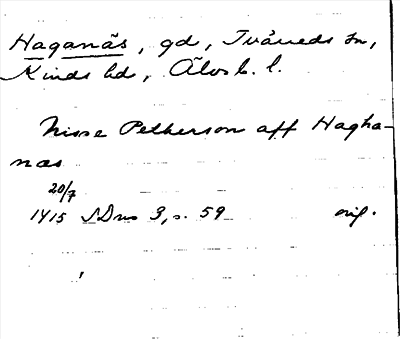 Haganäs, gd, Tvärreds sn,
Kinds hd, Älvsb. l.
Nisse Petherson aff Hagha-
næs
20/7
1415 SDns 3, s. 59 orig.